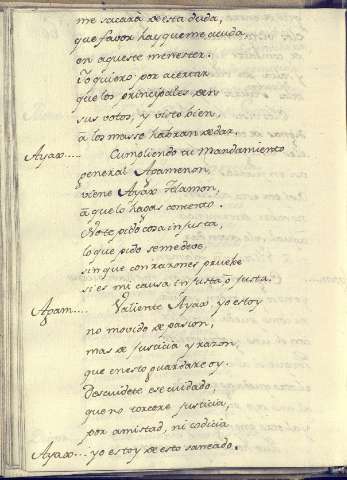 me sacará de esta duda,
que favor hay que me acuda,
en aqueste menester.
Yo quiero por acertar
que los principales den
sus votos, y visto bien,
a los mas se habran de dar.
Ayax.... Cumpliendo tu mandamiento
general Agamenon,
viene Ayax Telamon,
a que lo hagas contento.
No te pido cosa injusta,
lo que pido se me deve
sin que con razones pruebe
si es mi causa injusta o justa.
Agam.... Valiente Ayax, yo estoy
no movido de pasion,
mas de justicia y razon,
que en esto guardare oy.
Descuidete ese cuidado,
que no torcere justicia,
por amistad, ni codicia
Ayax... yo estoy de esto saneado.